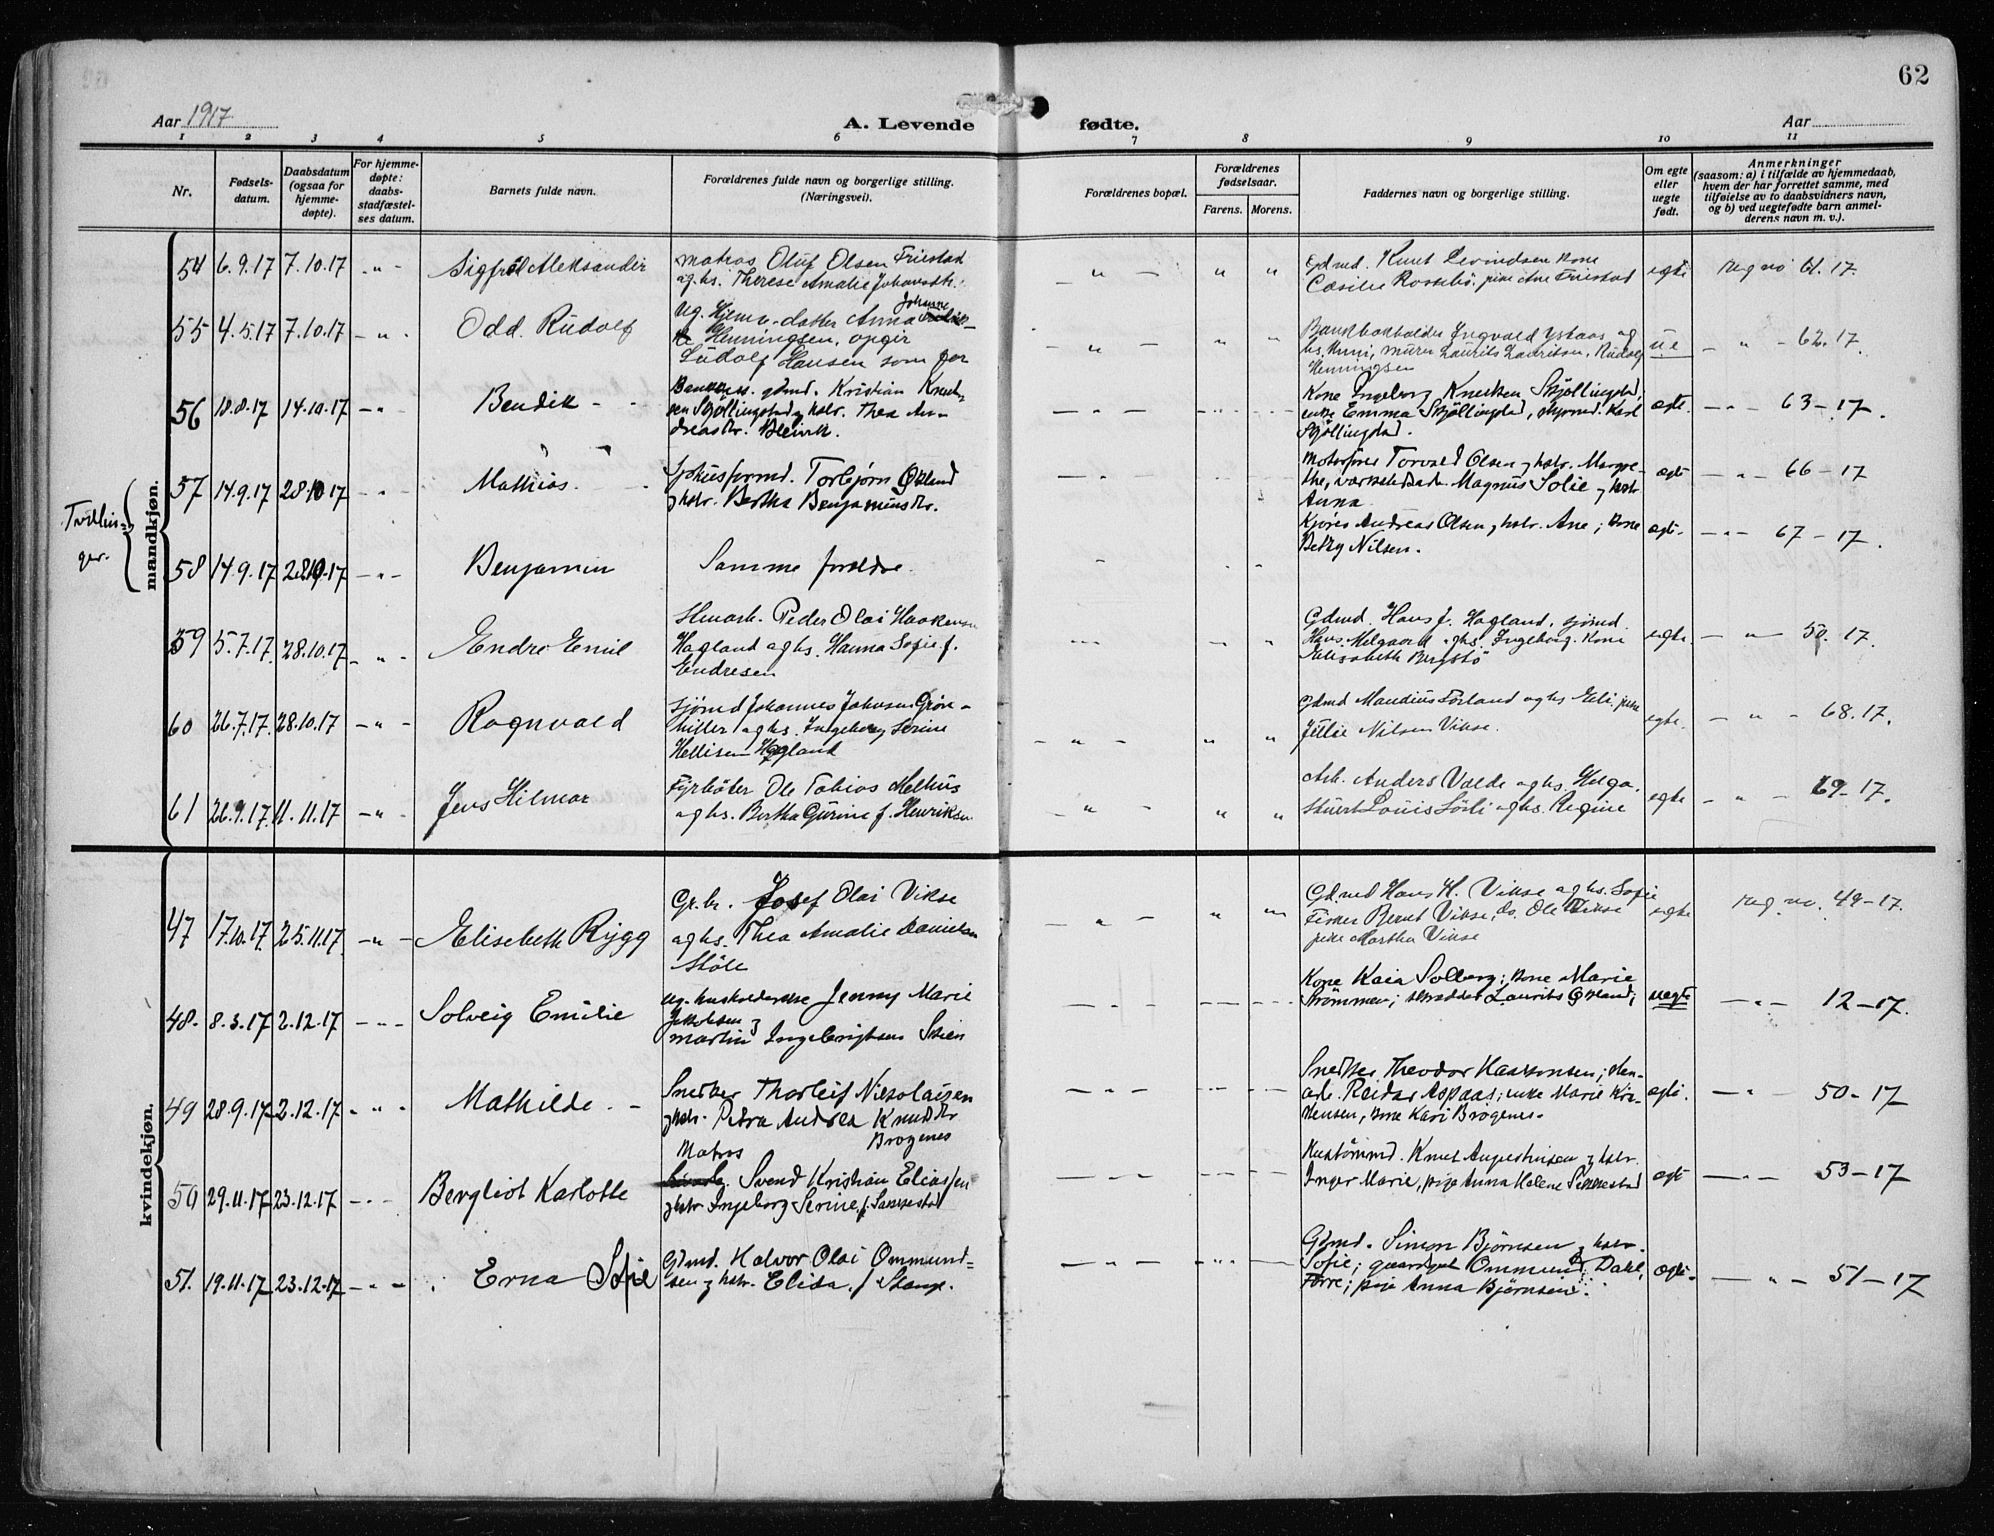 62
Aar 1917
A. Levende fødte.
Aar
1 2 3 4 5 6 7 8 9 10 11
Nr.
Fødsels-
datum.
Daabsdatum
(ogsaa for
hjemme-
døpte).
For hjemme-
døpte:
daabs-
stadfæstel-
ses datum.
Barnets fulde navn.
Forældrenes fulde navn og borgerlige stilling.
(Næringsvei).
Forældrenes bopæl.
Forældrenes
fødselsaar.
Farens. Morens.
Faddernes navn og borgerlige stilling.
Om egte
eller
uegte
født.
Anmerkninger
(saasom: a) i tilfælde av hjemmedaab,
hvem der har forrettet samme, med
tilføielse av to daabsvidners navn,
og b) ved uegtefødte barn anmel-
derens navn m. v.).
mandkjøn.
54 6.9.17 7.10.17 -"-
Aleksander
Matros Oluf Olsen Friestad
og hs. Therese Amalie
Gdmd. Knut kone
pike Ane Friestad
egte
Reg no 61.17.
55 4.5.17 7.10.17 -"-
Odd. Rudolf
Ug. datter Anna Johanne
Henningsen, opgir
Ludolf Hansen som far
Ingvald og
hs. Laurits Lauritsen, Rudolf
Henningsen
ue
- " - 62.17.
56 18.8.17 14.10.17 -"-
Bendik
gdmd. Kristian Knut-
sen Skjöllingstad og hstr. Thea An-
dreasdtr. Bleivik.
Kone Ingeborg Knutsen Skjöllingstad,
enke Emma Skjöllingstad, Karl
Skjöllingstad.
egte.
- " - 63-17.
Tvillin-
ger.
57 14.9.17 28.10.17 -"-
Mathias.
Torbjørn Økland
og hstr. Bertha Benjaminsdtr.
Motorfører Torvald Olsen og hstr. Margre-
the, Magnus Solie og hstr
Anna
egte
- " - 66-17
58 14.9.17 28.10.17 -"-
Benjamin
Samme forældre.
Kjører Andreas Olsen og hstr. Ane; Kone
Betzy Nilsen.
egte.
- " - 67-17.
59 5.7.17. 28.10.17 -"-
Endre Emil
Peder Olai Haakonsen
Hagland og hs. Hanna Sofie f.
Endresen
Gdmd. Hans J. Hagland, sjømd.
Hans og hs. Ingeborg. Kone
Elisabeth Bergstö
egte.
- " - 50.17.
60 26.7.17. 28.10.17 -"-
Ragnvald
Sjömd Johannes Johnsen Grön-
og hs. Ingeborg Serine
Hagland
Gdmd og hs Eli, pike
Nilsen Vikse.
egte.
- " - 68.17.
61 26.9.17. 11.11.17 -"-
Jens Hilmar
Fyrböter Ole Tobias Melhus
og hs. Bertha Gurine f. Henriksen.
Arb. Anders Valde og hs. Helga.
Stuert Louis og hs. Regine
egte
- " - 69-17.
kvindekjøn.
47 17.10.17 25.11.17 -"-
Elisebeth Rygg
Gr.br. Josef Olai Vikse
og hs. Thea Amalie Danielsen
Gdmd Hans H. Vikse og hs. Sofie
Fisker Bernt Vikse, do. Ole Vikse
pike Martha Vikse
egte
Reg no. 49-17.
48. 8.3.17 2.12.17 -"-
Solveig Emilie
ug. husholderske Jenny Marie
Jakobsen og
Martin Ingebrigtsen Skien
Kone Kaia Solberg; kone Marie
Strömmen; skrædder Laurits Økland;
uegte
- " - 12-17.
49 28.9.17 2.12.17 -"-
Mathilde.
Snedker Thorleif Nikolaisen
og hstr. Petra Andrea Knudsdtr
Brogenes
Snedker Theodor Haakonsen;
arb. Reidar Aspaas; enke Marie Kris-
tensen, kone Kari Brogenes.
egte.
- " - 50-17
50 29.11.17 23.12.17 -"-
Bergliot Karlotte
Matros
Svend Kristian Eliassen
og hstr Ingeborg Serine, f.
Knut Augustinsen og hstr.
Inger Marie, pige Anna Helene
egte
- " - 53-17
51. 19.11.17 23.12.17 -"-
Erna Sofie
Gdmd. Halvor Olai Ommund-
sen og hstr. Elida f. Stange.
Gdmd. Simon Bjørnsen og hstr.
Sofie; Ommund Dahl,
pige Anna Bjørnsen.
egte.
- " - 51-17